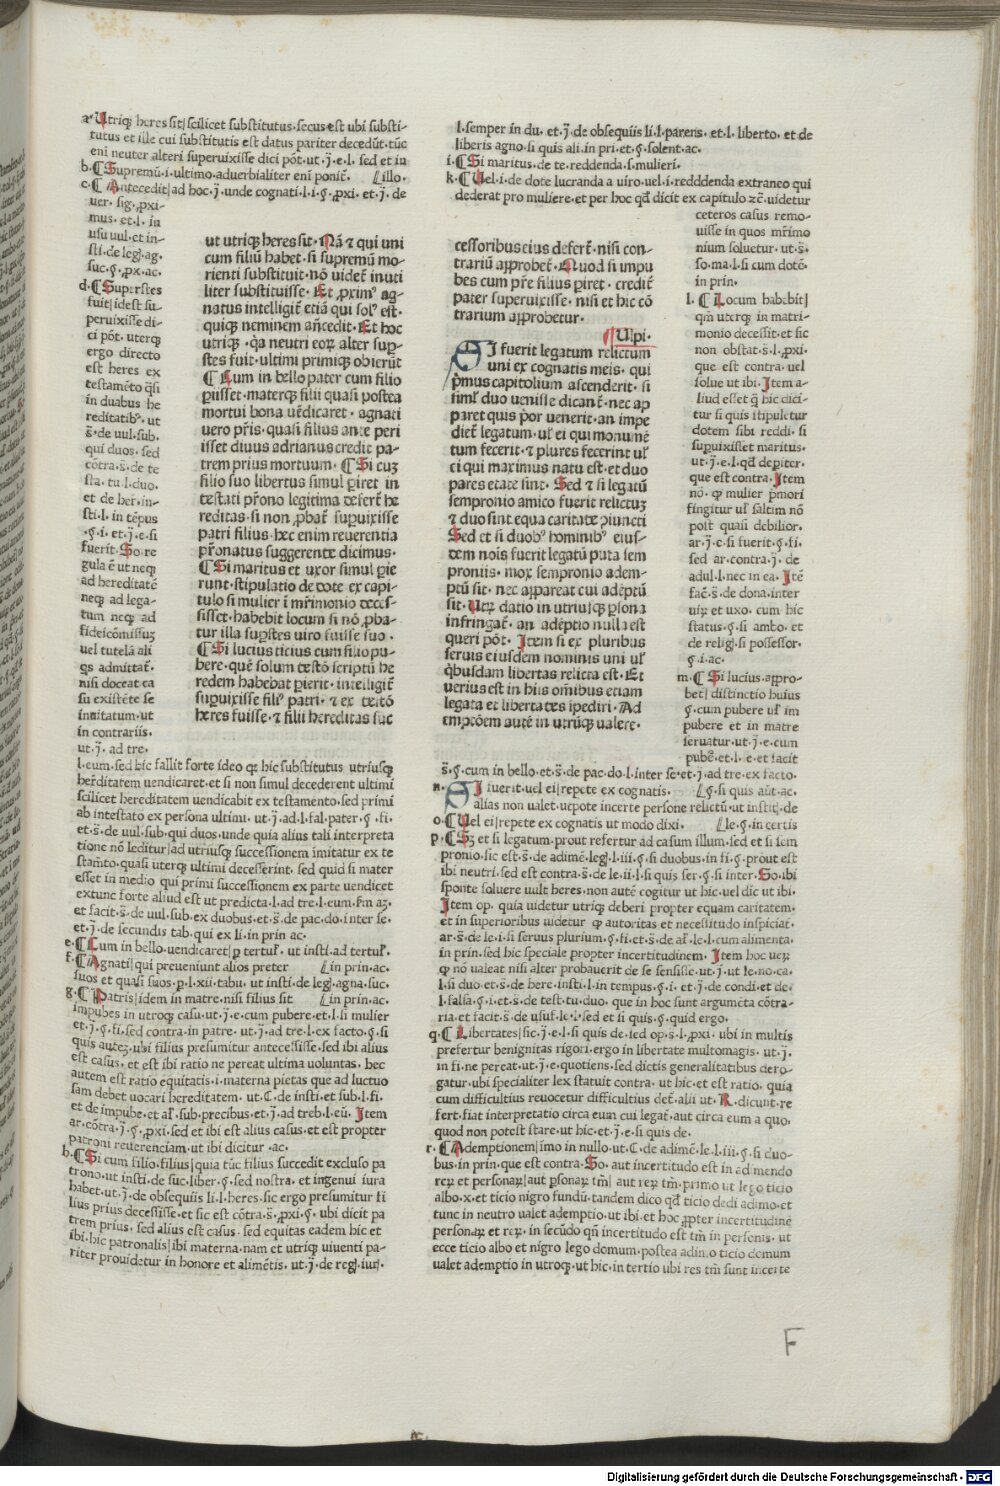 a· Utriq̃ heres sit| scilicet substitutus·secus est ubi substi-
tutus et ille cui substitutis est datus pariter decedūt·tūc
eni neuter alteri superuixisse dici pōt·ut·j̄·e·l· sed et in
b·¶Supremū·i·ultimo·aduerbialiter eni ponit̄· ⟦illo·
c·¶Antecedit| ad hoc·j̄·unde cognati·l·i·§·ꝓxi· et·j̄· de
uer· sig·ꝓxi-
mus· et·l· in
usu uul·et in-
sti·de leg·ag·
suc·§·ꝓx·ac·
d·¶Superstes
fuit| idest su-
peruixisse di-
ci pōt· uterq̨
ergo directo
est heres ex
testamēto q̄si
in duabus he
reditatib⁹· ut
s̄·de uul·sub·
qui duos· sed
cōtra·s̄·de te
sta·tu·l·duo·
et de her·in-
sti·l·in tēpus
·§·i·et·j̄·e·si
fuerit·So·re
gula ē ut neq̨
ad hereditatē
neq̨ ad lega-
tum neq̨ ad
fideicōmissuȝ
uel tutelā ali
q̨s admittat̄·
nisi doceat ea
sū existēte se
inuitatum·ut
in contrariis·
ut·j̄· ad tre·
l·eum·sed hic fallit forte ideo q̨ hic substitutus utriusq̨
her̄ditatem uendicaret·et si non simul decederent ultimi
scilicet hereditatem uendicabit ex testamento·sed primi
ab intestato ex persona ultimi· ut·j̄·ad·l·fal·pater·§·fi·
et·s̄·de uul·sub·qui duos·unde quia alius tali interpreta
tione nō leditur| ad utriusq̨ successionem imitatur ex te
stam̄to·quasi uterq̨ ultimi decesserint· sed quid si mater
esset in medio qui primi successionem ex parte uendicet
extunc forte aliud est ut predicta·l·ad tre·l·eum·fm aȝ·
et facit·s̄·de uul·sub·ex duobus·et·s̄·de pac·do·inter se·
et·j̄·de secundis tab·qui ex li·in prin ac·
e·¶Cum in bello·uendicaret| ꝑ tertuƚ· ut insti·ad tertuƚ·
f·¶Agnati| qui preueniunt alios preter ⟦in prin·ac·
suos et quasi suos·ꝑ·l·xii·tabu· ut insti·de leg·agna·suc·
g·¶Patris| idem in matre·nisi filius sit ⟦in prin·ac·
impubes in utroq̨ casu·ut·j̄·e·cum pubere·et·l·si mulier
et·j̄·§·fi·sed contra·in patre· ut·j̄·ad tre·l·ex facto·§·si
quis auteȝ·ubi filius presumitur antecessisse·sed ibi alius
est casus· et est ibi ratio ne pereat ultima uoluntas· hec
autem est ratio equitatis·i·materna pietas que ad luctuo
sam debet uocari hereditatem· ut·C·de insti·et sub·l·fi·
et de impube·et aƚ·sub·precibus·et·j̄·ad treb·l·eū·Item
ar·cōtra·j̄·§·ꝓxi·sed et ibi est alius casus·et est propter
patroni reuerenciam·ut ibi dicitur ·ac·
h·¶Si cum filio·filius| quia tūc filius succedit excluso pa
trono·ut insti·de suc·liber·§·sed nostra· et ingenui iura
habet·ut·j̄·de obsequiis li·l·heres·sic ergo presumitur fi
lius prius decessisse·et sic est cōtra·s̄·ꝓxi·§· ubi dicit pa
trem prius· sed alius est casus· sed equitas eadem hic et
ibi·hic patronalis| ibi materna·nam et utriq̨ uiuenti pa-
riter prouidetur in honore et alimētis·ut·j̄·de regl·iur·
ut utriq̨ heres sit·Nā ⁊ qui uni
cum filiū habet·si supremū mo-
rienti substituit·nō videt̄ inuti
liter substituisse·Et ꝓxim⁹ ag-
natus intelligit̄ etiā qui sol⁹ est·
quiq̨ neminem añcedit·Et hoc
utriq̨ ·q̨a neutri eoꝝ alter suꝑ-
stes fuit·ultimi primiq̨ obierūt
¶Cum in bello pater cum filio
ꝑiisset·materq̨ filii quasi postea
mortui bona uēdicaret· agnati
uero pr̄is· quasi filius ante peri
isset diuus adrianus credit pa-
trem prius mortuum· ¶Si cuȝ
filio suo libertus simul ꝑiret in
testati pr̄ono legitima defert̄ he
reditas·si non ꝓbat̄ suꝑuixisse
patri filius·hec enim reuerentia
pr̄onatus suggerente dicimus·
¶Si maritus et uxor simul ꝑie
runt·stipulatio de dote ex capi-
tulo si mulier ī mr̄imonio deces-
sisset·habebit locum si nō ꝓba-
tur illa suꝑstes uiro fuisse suo ·
¶Si lucius ticius cum filio pu-
bere·quē solum testō scriptū he
redem habebat ꝑierit· intelligit̄
suꝑuixisse fili⁹ patri· ⁊ ex testō
heres fuisse·⁊ filii hereditas suc
l·semper in du· et·j̄·de obsequiis li·l·parens· et·l· liberto· et de
liberis agno·si quis ali·in pri·et·§·solent·ac·
i·¶Si maritus·de te·reddenda·s·mulieri·
k·¶Uel·i·de dote lucranda a uiro·uel·i·redddenda extraneo qui
dederat pro muliere·et per hoc qđ dicit ex capitulo ⁊c̄·uidetur
ceteros casus remo-
uisse in quos mr̄imo
nium soluetur· ut·s̄·
so·ma·l·si cum dotē·
in prin·
l·¶Locum habebit|
qm̄ uterq̨ in matri-
monio decessit·et sic
non obstat·s̄·l·ꝓxi·
que est contra· uel
solue ut ibi·Item a-
liud esset q̨ hic dici-
tur si quis stipuletur
dotem sibi reddi· si
suꝑuixisset maritus·
ut·j̄·e·l·qđ depiter·
que est contra·Item
nō· q̨ mulier p̄mori
fingitur uƚ saltim nō
post quasi debilior·
ar·j̄·e·si fuerit·§·fi·
sed ar·contra·j̄· de
adul·l·nec in ea·Itē
fac̄·s̄·de dona·inter
uiꝝ et uxo· cum hic
status·§·si ambo· et
de religi·si possessor·
§·i·ac·
m·¶Si lucius·aꝓro-
bet| distinctio huius
§·cum pubere uƚ im
pubere et in matre
seruatur·ut·j̄·e·cum
pubē·et·l·e·et facit
s̄·§·cum in bello·et·s̄·de pac·do·l·inter se·et·j̄·ad tre·ex facto·
cessoribus eius defert̄·nisi con-
trariū aꝓrobet̄·Quod si impu
bes cum pr̄e filius ꝑiret· credit̄
pater superuixisse· nisi et hic cō
trarium aꝓrobetur·
¶Ulpi·
SI fuerit legatum relictum
uni ex cognatis meis· qui
p̄mus capitolium ascenderit· si
simƚ duo uenisse dicant̄· nec ap
paret quis p̄or uenerit·an impe
diet̄ legatum· uƚ ei qui monumē
tum fecerit·⁊ plures fecerint uƚ
ei qui maximus natu est·et duo
pares etate sint· Sed ⁊ si legatū
sempronio amico fuerit relictuȝ
⁊ duo sint equa caritate ꝓiuncti
Sed et si duob⁹ hominib⁹ eius-
dem nōis fuerit legatū puta sem
proniis· mox sempronio adem-
ptū sit· nec appareat cui adēptū
sit·Utꝝ datio in utriusq̨ ꝑsona
infringat̄· an adēptio nulla est
queri pōt·Item si ex pluribus
seruis eiusdem nominis uni uƚ
q̄busdam libertas relicta est·Et
uerius est in hiis oībus etiam
legata et libertates īpediri·Ad
emptōem autē in utrūq̨ ualere·
n· SI fuerit·uel ei| repete ex cognatis· ⟦§·si quis aūt·ac·
alias non ualet·utpote incerte persone relictū·ut instit·de
o·¶Uel ei| repete ex cognatis ut modo dixi· ⟦le·§·incertis
p·¶Sȝ et si legatum·prout refertur ad casum illum·sed et si sem
pronio·sic est·s̄·de adimē·leg·l·iii·§·si duobus·in fi·§·prout est
ibi neutri·sed est contra·s̄·de le·ii·l·si quis ser·§·si inter·So·ibi
sponte soluere uult heres·non autē cogitur ut hic·uel dic ut ibi·
Item op·quia uidetur utriq̨ deberi propter equam caritatem·
et in superioribus uidetur q̨ autoritas et necessitudo inspiciat·
ar·s̄·de le·i·si seruus plurium·§·fi·et·s̄·de aƚ·le·l·cum alimenta·
in prin·sed hic speciale propter incertitudinem· Item hoc ueꝝ
q̨ nō ualeat nisi alter probauerit de se sensisse·ut·j̄·ut le·no·ca·
l·si duo·et·s̄·de here·insti·l·in tempus·§·i· et·j̄·de condi·et de·
l·falsa·§·i·et·s̄·de test·tu·duo· que in hoc sunt argumēta cōtra-
ria·et facit·s̄·de usuf·le·l·sed et si quis·§·quid ergo·
q·¶Libertates| sic·j̄·e·l·si quis de·sed op·s·l·ꝓxi· ubi in multis
prefertur benignitas rigori·ergo in libertate multomagis·ut·j̄·
in fi·ne pereat·ut·j̄·e·quotiens·sed dictis generalitatibus dero-
gatur·ubi specialiter lex statuit contra·ut hic·et est ratio· quia
cum difficultius reuocetur difficultius det̄·alii ut· R·dicunt·re
fert·fiat interpretatio circa eum cui legat̄·aut circa eum a quo·
quod non potest stare·ut hic·et·j̄·e·si quis de·
r·¶Ademptionem| imo in nullo·ut·C·de adimē·le·l·iii·§·si duo-
bus·in prin·que est contra·So· aut incertitudo est in ad mendo
reꝝ et personaꝝ| aut ꝑsonaꝝ tm̄| aut reꝝ tm̄·primo ut lego ticio
albo·x·et ticio nigro fundū·tandem dico qđ ticio dedi adimo·et
tunc in neutro ualet ademptio·ut ibi·et hoc ꝓpter incertitudinē
personaꝝ et reꝝ·in secūdo qn̄ incertitudo est tm̄ in personis· ut
ecce ticio albo et nigro lego domum·postea adimo ticio domum
ualet ademptio in utroq̨·ut hic·in tertio ubi res tm̄ sunt incerte
F
Digitalisierung gefördert durch die Deutsche Forschungsgemeinschaft · DFG